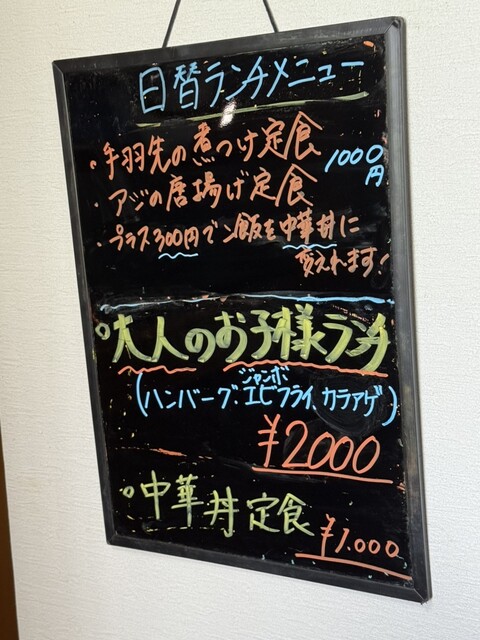 日替ランチメニュー
・手羽先の煮つけ定食
1000円
・アジの唐揚げ定食
・プラス300円でご飯を中華丼に
変えれます!
○大人のお子様ランチ
(ハンバーグ・ジャンボエビフライ、カラアゲ)
¥2000
○中華丼定食
¥1.000